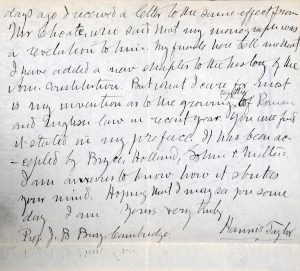 days ago I received a letter to the same effect from
Mr Choate, who said that my monograph was
a revelation to him. My friends here tell me that
I have added a new chapter to the history of the
Am. Constitution. But what I care for most
is my invention as to the growing together of Roman
and English law in recent years. You will find
it stated in my preface. It has been ac-
cepted by Bryce, Holland, & others.
I am anxious to know how it strikes
your mind. Hoping that I may see you some
day I am Yours very truly
Prof. J. B. Bury, Cambridge Hannis Taylor